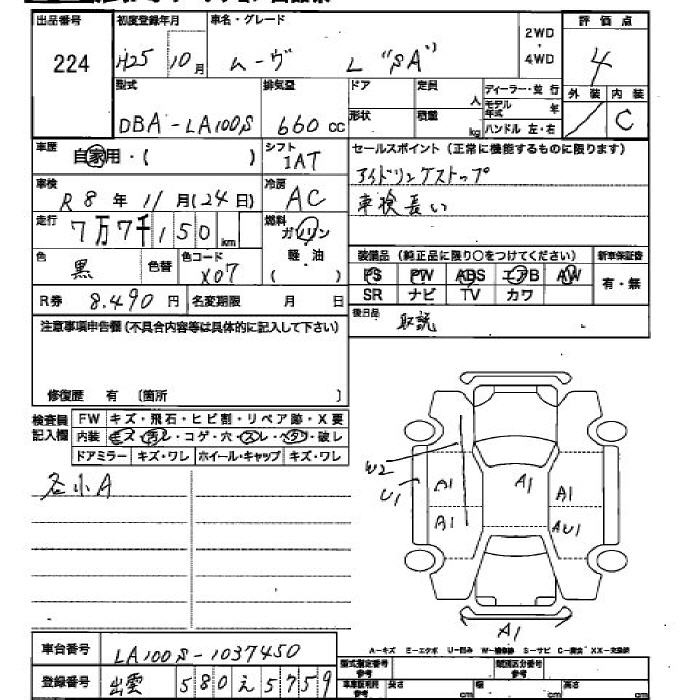 出品番号 初度登録年月 車名・グレード 2WD・4WD 評価点
224 H25 10月 ムーヴ L "SA" 4
型式 排気量 ドア 定員 人 ディーラー・並行 外装 内装
モデル年式 年
DBA-LA100S 660cc 形状 積載 kg ハンドル 左・右 C
車歴 自家用・( ) シフト 1AT セールスポイント (正常に機能するものに限ります)
アイドリングストップ
車検 R8年11月(24日) 冷房 AC 車検長い
走行 7万7千150km 燃料 ガソリン
軽・油
( )
色 黒 色替 色コード X07 装備品 (純正品に限り○をつけてください) 新車保証書
PS PW ABS エアB AW 有・無
SR ナビ TV カワ
R券 8.490円 名変期限 月 日
後日品 取説
注意事項申告欄 (不具合内容等は具体的に記入して下さい)
修復歴 有 〔箇所 〕
検査員記入欄 FW キズ・飛石・ヒビ割・リペア跡・X要
内装 キズ・汚レ・コゲ・穴・スレ・ヘタリ・破レ
ドアミラー キズ・ワレ ホイール・キャップ キズ・ワレ
各小A
W2
U1
A1 A1 A1
A1 AU1
A1
A-キズ E-エクボ U-凹み W-補修跡 S-サビ C-腐食 XX-交換済
車台番号 LA100S-1037450 型式指定番号 参考 類別区分番号 参考
登録番号 出雲 580 え 5759 長さ cm 幅 cm 高さ cm